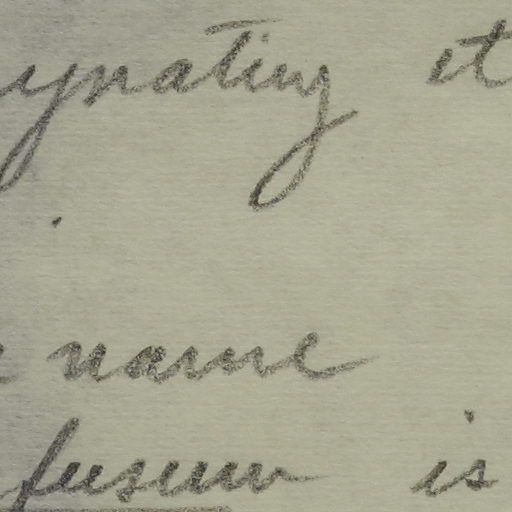 ynating it
name
fuscum is